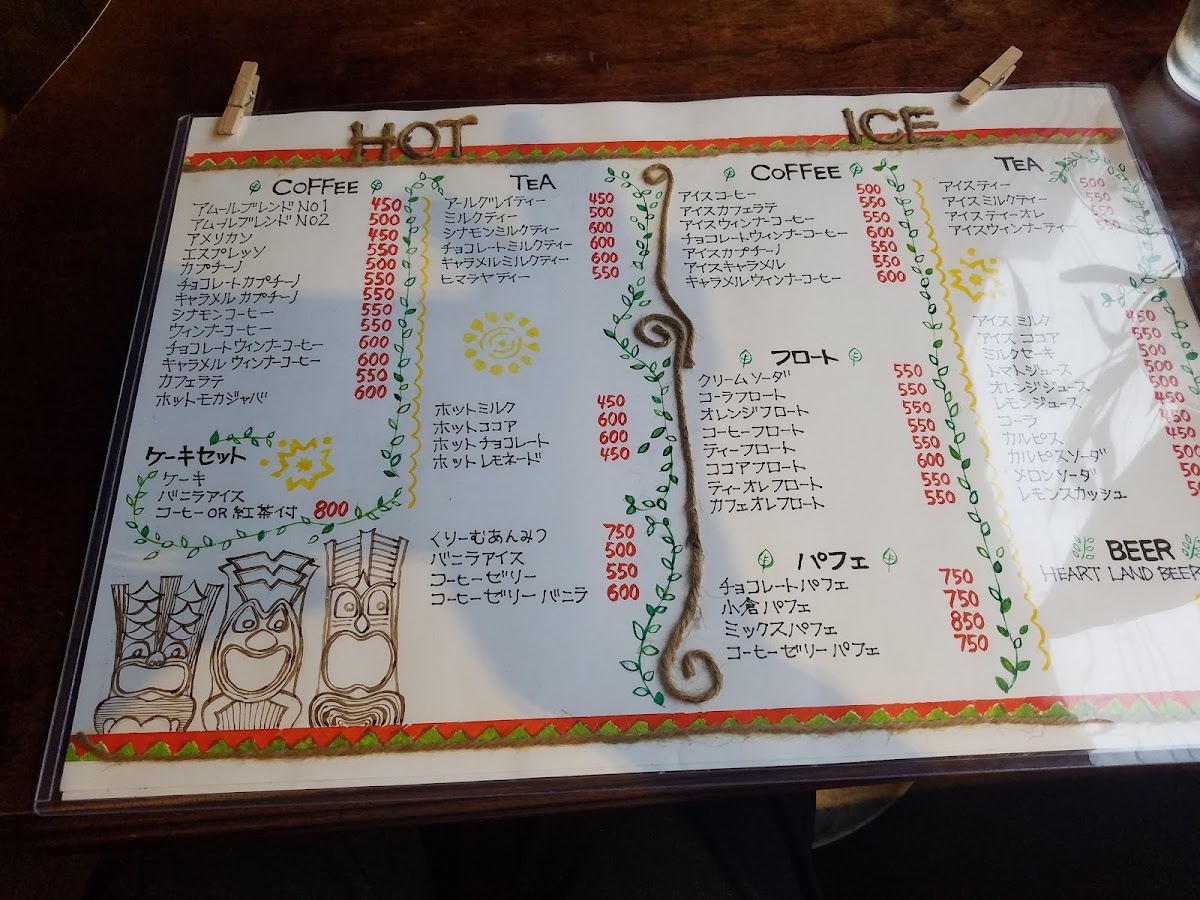 HOT
COFFEE
アムールブレンド NO1 450
アムールブレンド NO2 500
アメリカン 450
エスプレッソ 550
カプチーノ 500
チョコレートカプチーノ 550
キャラメルカプチーノ 550
シナモンコーヒー 550
ウィンナーコーヒー 550
チョコレートウィンナーコーヒー 600
キャラメルウィンナーコーヒー 600
カフェラテ 550
ホットモカジャバ 600
ケーキセット
ケーキ
バニラアイス
コーヒー OR 紅茶付 800
TEA
アールグレイティー 450
ミルクティー 500
シナモンミルクティー 600
チョコレートミルクティー 600
キャラメルミルクティー 600
ヒマラヤティー 550
ホットミルク 450
ホットココア 600
ホットチョコレート 600
ホットレモネード 450
くりーむあんみつ 750
バニラアイス 500
コーヒーゼリー 550
コーヒーゼリーバニラ 600
ICE
COFFEE
アイスコーヒー 500
アイスカフェラテ 550
アイスウィンナーコーヒー 550
チョコレートウィンナーコーヒー 600
アイスカプチーノ 550
アイスキャラメル 550
キャラメルウィンナーコーヒー 600
フロート
クリームソーダ 550
コーラフロート 550
オレンジフロート 550
コーヒーフロート 550
ティーフロート 550
ココアフロート 600
ティーオレフロート 550
カフェオレフロート 550
パフェ
チョコレートパフェ 750
小倉パフェ 750
ミックスパフェ 850
コーヒーゼリーパフェ 750
TEA
アイスティー 500
アイスミルクティー 550
アイスティーオレ 550
アイスウィンナーティー 550
アイスミルク 450
アイスココア 550
ミルクセーキ 500
トマトジュース 500
オレンジジュース 500
レモンジュース 450
コーラ 450
カルピス 450
カルピスソーダ
メロンソーダ
レモンスカッシュ
BEER
HEART LAND BEER